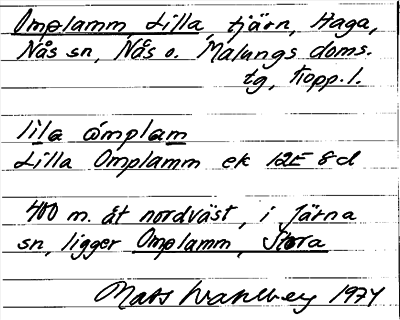 Omplamm, Lilla, tjärn, Haga,
Nås sn, Nås o. Malungs doms.
tg, Kopp. l.
lila ómplam
Lilla Omplamm ek 12E 8d
400 m. åt nordväst, i Järna
sn, ligger Omplamm, Stora
Mats Wahlberg 1974